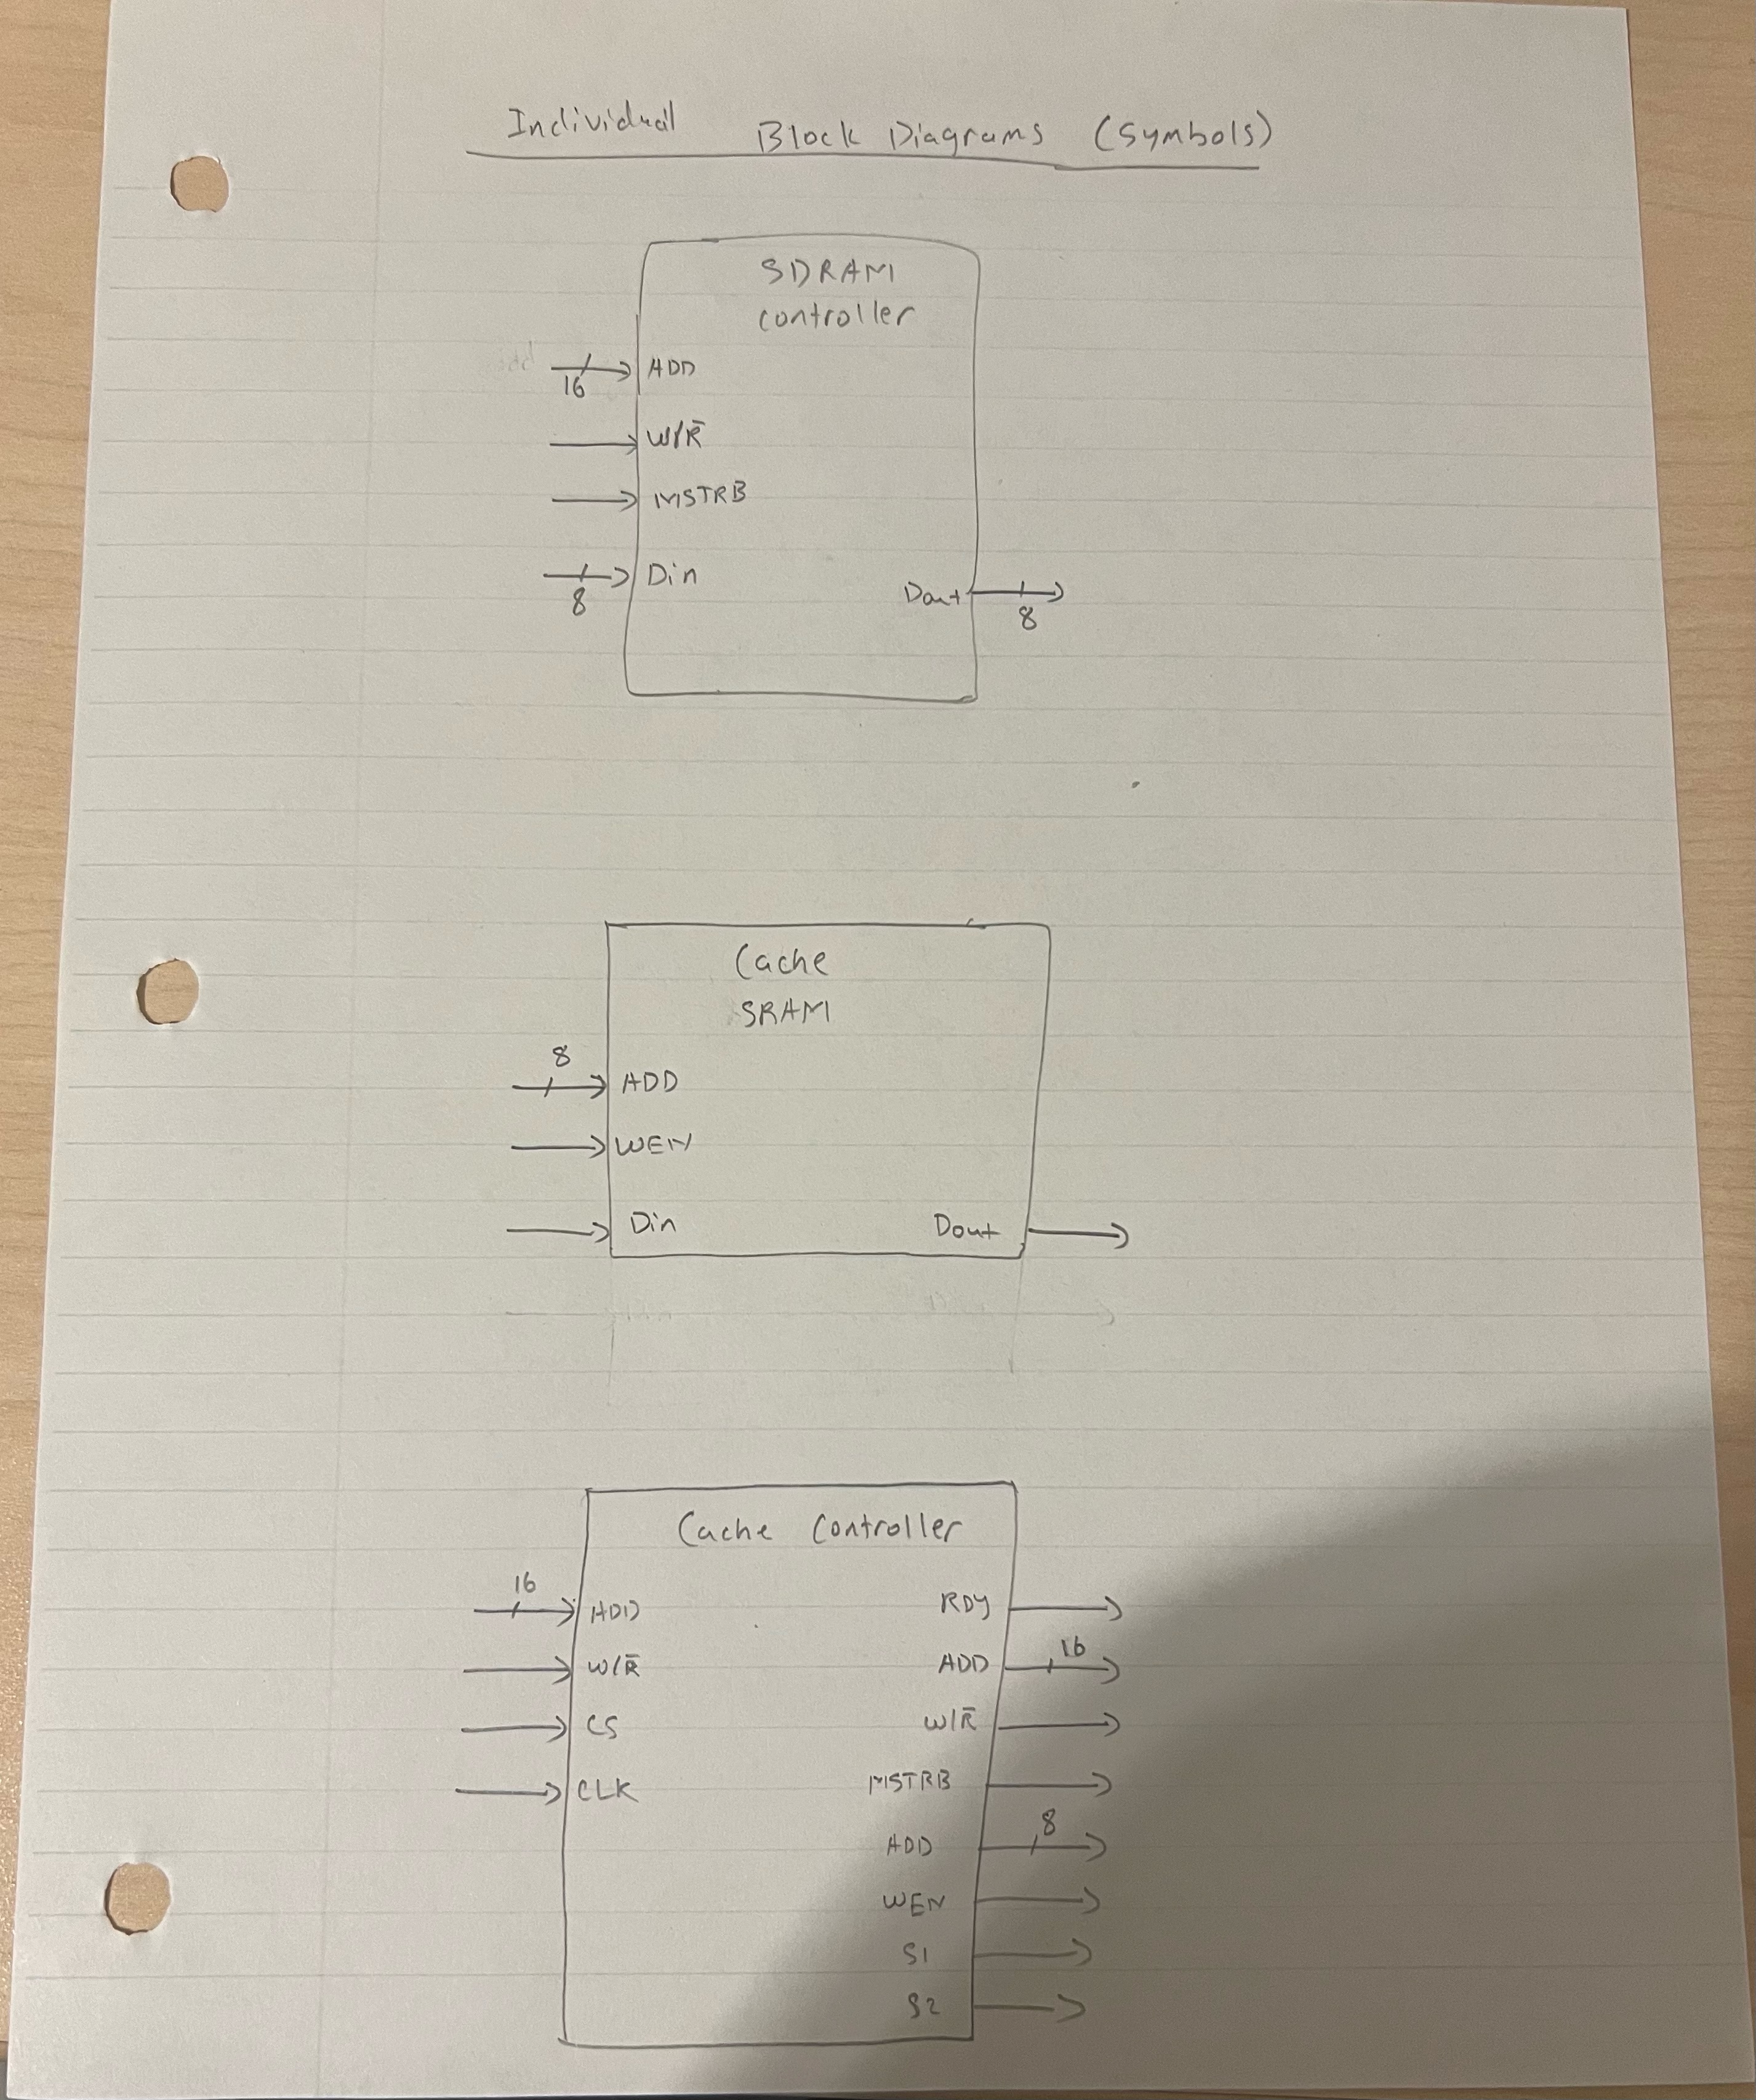 Individual Block Diagrams (Symbols)
SDRAM
controller
16
ADD
W/R̅
MSTRB
8
Din
Dout
8
Cache
SRAM
8
ADD
WEN
Din
Dout
Cache Controller
16
ADD
RDY
W/R̅
ADD
16
CS
W/R̅
CLK
MSTRB
ADD
8
WEN
S1
S2